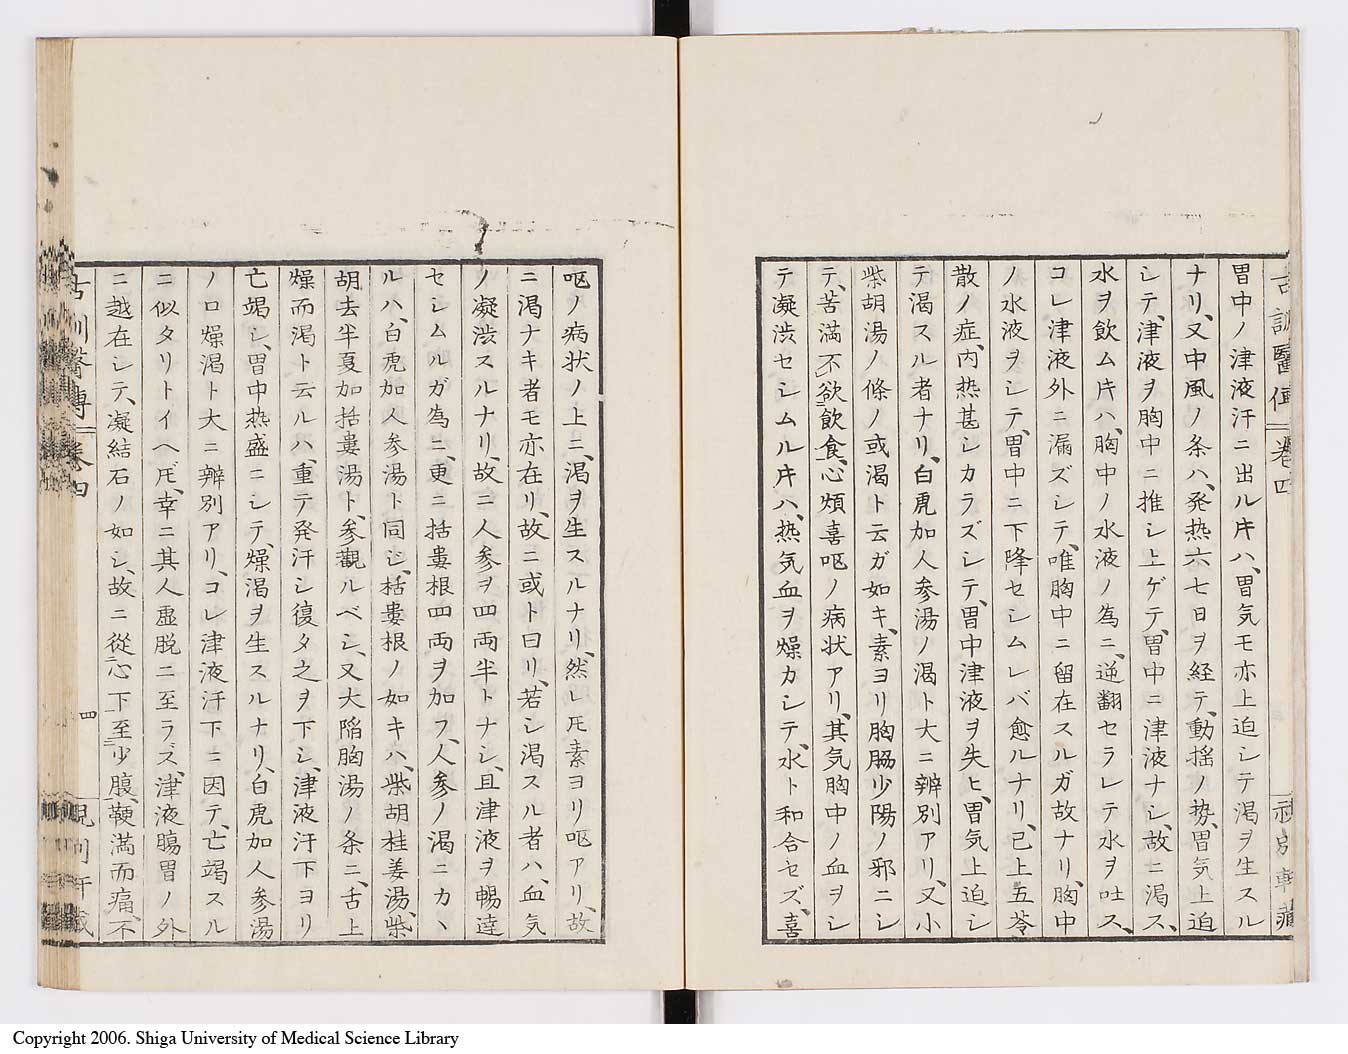 胃中ノ津液汗ニ出ル片ハ、胃気モ亦上迫シテ渇ヲ生スル
ナリ、又中風ノ条ハ、発热六七日ヲ経テ、動揺ノ势、胃気上迫
シテ、津液ヲ胸中ニ推シ上ゲテ、胃中ニ津液ナシ、故ニ渇ス、
水ヲ飲ム片ハ、胸中ノ水液ノ為ニ、逆翻セラレテ水ヲ吐ス、
コレ津液外ニ漏ズシテ、唯胸中ニ留在スルガ故ナリ、胸中
ノ水液ヲシテ、胃中ニ下降セシムレバ愈ルナリ、已上五苓
散ノ症、内热甚シカラズシテ、胃中津液ヲ失ヒ、胃気上迫シ
テ渇スル者ナリ、白虎加人参湯ノ渇ト大ニ辨別アリ、又小
柴胡湯ノ條ノ或渇ト云ガ如キ、素ヨリ胸脇少陽ノ邪ニシ
テ、苦満不欲飲食、心煩喜呕ノ病状アリ、其気胸中ノ血ヲシ
テ凝渋セシムル片ハ、热気血ヲ燥カシテ、水ト和合セズ、喜
古訓醫傳 卷四
呕ノ病状ノ上ニ、渇ヲ生スルナリ、然レ𪜈素ヨリ呕アリ、故
ニ渇ナキ者モ亦在リ、故ニ或ト曰リ、若シ渇スル者ハ、血気
ノ凝渋スルナリ、故ニ人参ヲ四両半トナシ、且津液ヲ暢達
セシムルガ為ニ、更ニ括蔞根四両ヲ加フ、人参ノ渇ニカヽ
ルハ、白虎加人参湯ト同シ、括蔞根ノ如キハ、柴胡桂姜湯、柴
胡去半夏加括蔞湯ト、参觀ルベシ、又大陥胸湯ノ条ニ、舌上
燥而渇ト云ルハ、重テ発汗シ復タ之ヲ下シ、津液汗下ヨリ
亡竭シ、胃中热盛ニシテ、燥渇ヲ生スルナリ、白虎加人参湯
ノ口燥渇ト大ニ辨別アリ、コレ津液汗下ニ因テ、亡竭スル
ニ似タリトイヘ𪜈、幸ニ其人虚脱ニ至ラズ、津液腸胃ノ外
ニ越在シテ、凝結石ノ如シ、故ニ從心下至少腹、鞕満而痛、不
四
Copyright 2006. Shiga University of Medical Science Library